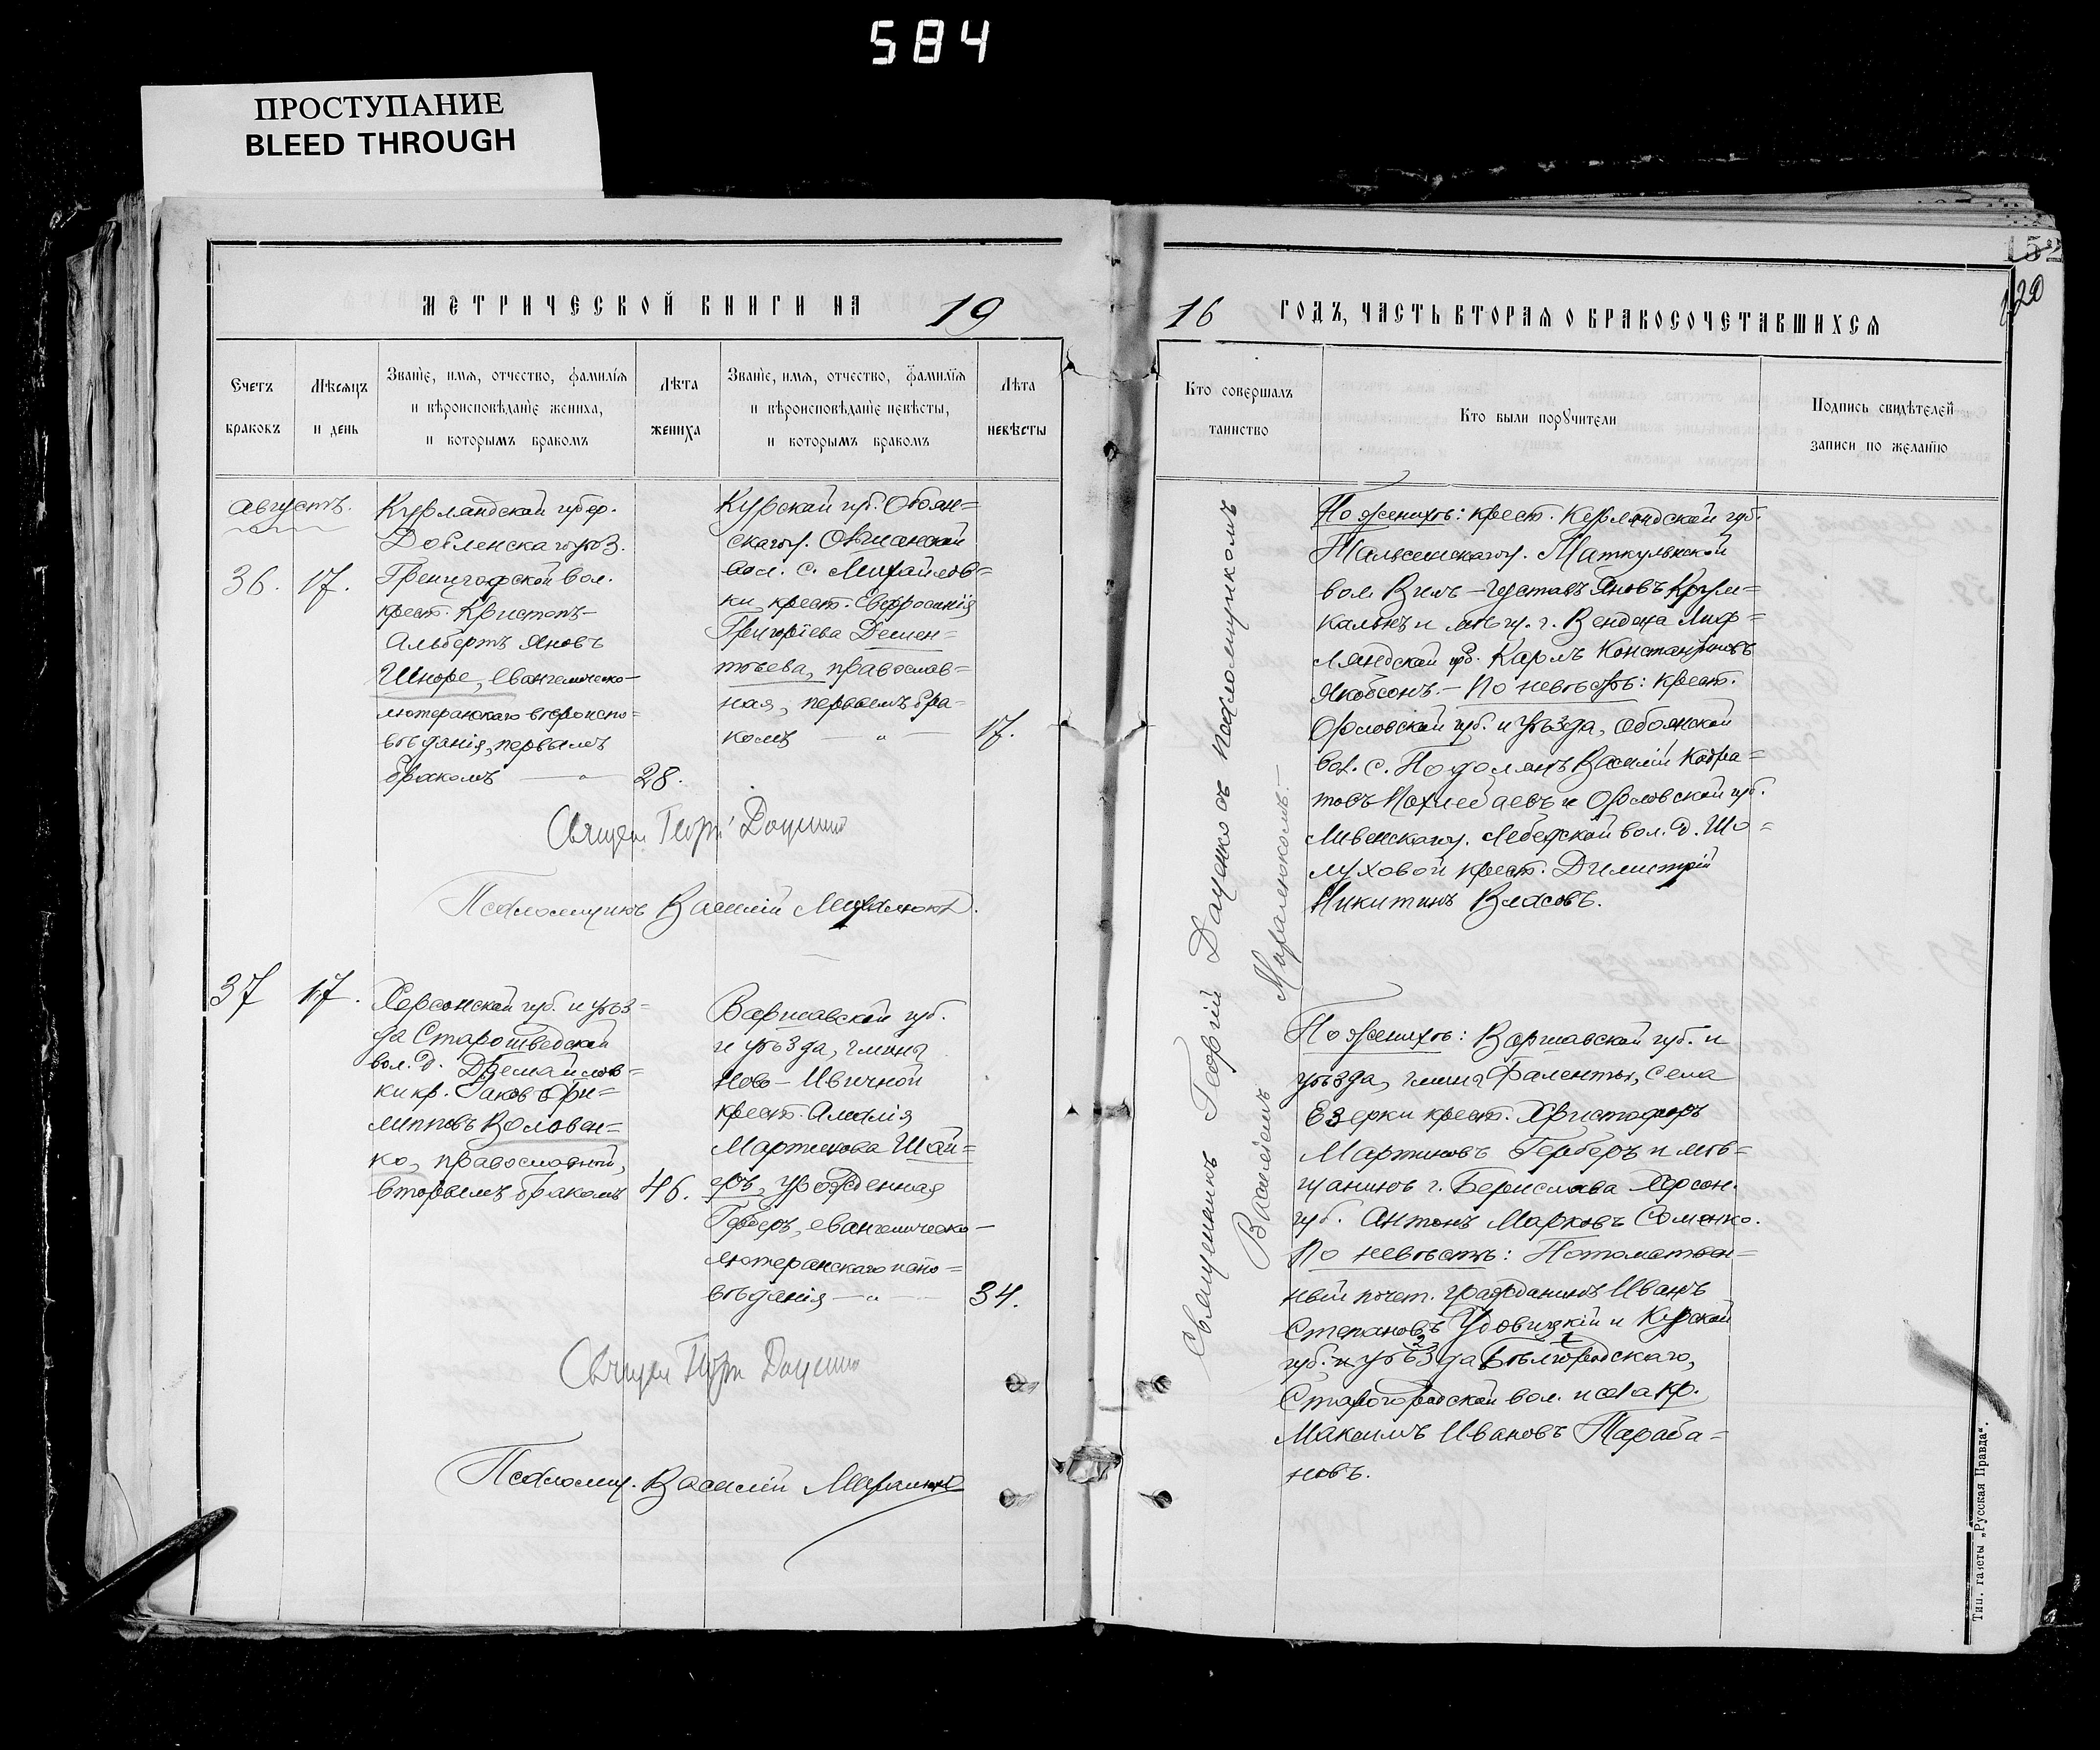 584
ПРОСТУПАНИЕ
BLEED THROUGH
152
120
МЕТРИЧЕСКОЙ КНИГИ НА 19
16 ГОДЪ, ЧАСТЬ ВТОРАЯ О БРАКОСОЧЕТАВШИХСЯ
Счетъ браковъ
Мѣсяцъ и день
Званіе, имя, отчество, фамилія
и вѣроисповѣданіе жениха,
и которымъ бракомъ
Лѣта жениха
Званіе, имя, отчество, фамилія
и вѣроисповѣданіе невѣсты,
и которымъ бракомъ
Лѣта невѣсты
Кто совершалъ
таинство
Кто были поручители
Подпись свидѣтелей
записи по желанію
Августъ.
36. 17.
Курляндской губер.
Добленскаго уѣз.
Гренцгофской вол.
крест. Кристопъ-
Альбертъ Яновъ
Шноре, евангелическо-
лютеранскаго вѣроиспо=
вѣданія, первымъ
бракомъ — " 28.
Курской губ. Обоян=
скаго у.
вол. с. Михайлов=
ки крест. Евфросинія
Григоріева Демен=
тьева, православ=
ная, первымъ бра=
комъ — " — 17.
Священ. Георгій Даценко
Псаломщикъ Василій Маралюкъ.
Священникъ Георгій Даценко съ псаломщикомъ
Василіемъ Маралюкомъ.—
По женихѣ: крест. Курляндской губ.
Тальсенскаго у. Маткульнской
вол. Виль-Густавъ Яновъ Крум=
кальнъ и мѣщ. г. Вендена Лиф=
ляндской губ. Карлъ Константиновъ
Якобсонъ.— По невѣстѣ: крест.
Орловской губ. и уѣзда, Обоянской
вол. с. Подолянъ Василій Кодра=
товъ и Орловской губ.
Ливенскаго у. вол. д. Шо=
луховой крест. Димитрій
Никитинъ Власовъ.
37 17.
Херсонской губ. и уѣз=
да Старошведской
вол. д. 
ки кр. Іаковъ Фи=
липповъ Волован=
ко, православной,
вторымъ бракомъ 46.
Варшавской губ.
и уѣзда, гмины
Ново-Ивичной
крест. Амалія
Мартинова Шай=
ръ, урожденная
Герберъ, евангелическо-
лютеранскаго испо=
вѣданія — " — 34.
Священ. Георгій Даценко
Псаломщ. Василій Маралюкъ
По женихѣ: Варшавской губ. и
уѣзда, гмины Фаленты, села
Езерки крест. Христофоръ
Мартиновъ Герберъ и мѣ=
щанинъ г. Берислава Херсон.
губ. Антонъ Марковъ Соменко.
По невѣстѣ: Потомствен=
ный почет. гражданинъ Иванъ
Степановъ Удовицкій и Курской
губ. и уѣзда Бѣлгородскаго,
Старогородской вол. и села кр.
Максимъ Ивановъ Тараба=
новъ.
Тип. газеты „Русская Правда“.